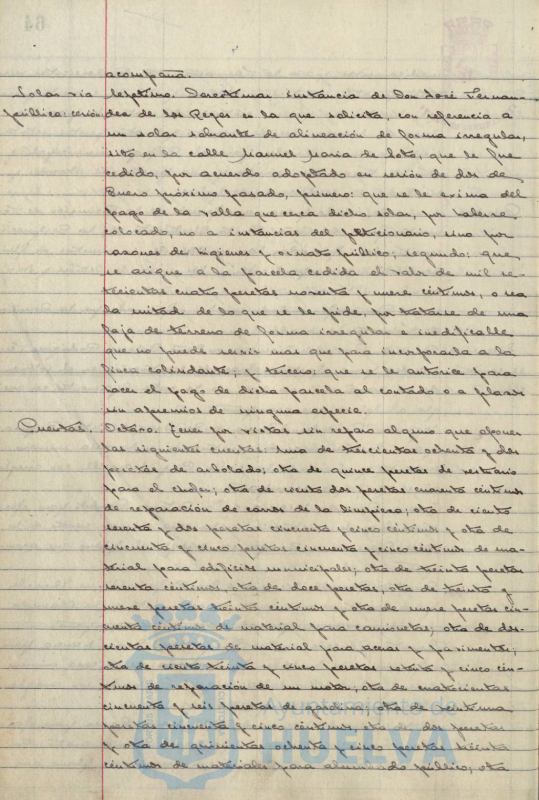 acompaña.
Solar vía pública: cesión
Septimo. Desestimar instancia de Don José Fernan-
dez de los Reyes en la que solicita, con referencia a
un solar sobrante de alineación de forma irregular,
sito en la calle Manuel Maria de Soto, que le fue
cedido, por acuerdo adoptado en sesión de dos de
Enero próximo pasado, primero: que se le exima del
pago de la valla que cerca dicho solar, por haberse
colocado, no a instancias del peticionario, sino por
razones de higiene y ornato público; segundo: que
se asigne a la parcela cedida el valor de mil se-
tecientas cuatro pesetas noventa y nueve céntimos, o sea
la mitad de lo que se le pide, por tratarse de una
faja de terreno de forma irregular e inedificable
que no puede servir mas que para incorporarla a la
finca colindante; y tercero: que se le autorice para
hacer el pago de dicha parcela al contado o a plazos
sin apremios de ninguna especie.
Cuentas.
Octavo. Tener por vistas sin reparo alguno que oponer
las siguientes cuentas: una de trescientas ochenta y dos
pesetas de arbolado; otra de quince pesetas de vestuario
para el chofer; otra de ciento dos pesetas cuarenta céntimos
de reparación de carros de la limpieza; otra de ciento
sesenta y dos pesetas cincuenta y cinco céntimos y otra de
cincuenta y cinco pesetas cincuenta y cinco céntimos de ma-
terial para edificios municipales; otra de treinta pesetas
céntimos, otra de doce pesetas, otra de treinta y
nueve pesetas treinta céntimos y otra de nueve pesetas cin-
cuenta céntimos de material para camionetas; otra de dos-
cientas pesetas de material para aceras y pavimentos;
otra de ciento treinta y cinco pesetas setenta y cinco cén-
timos de reparación de un motor; otra de cuatrocientas
cincuenta y seis pesetas de gasolina; otra de veintiuna
pesetas cincuenta y cinco céntimos otra de dos pesetas
y otra de quinientas ochenta y cinco pesetas treinta
céntimos de materiales para alumbrado público; otra
Ayuntamiento de
HUELVA